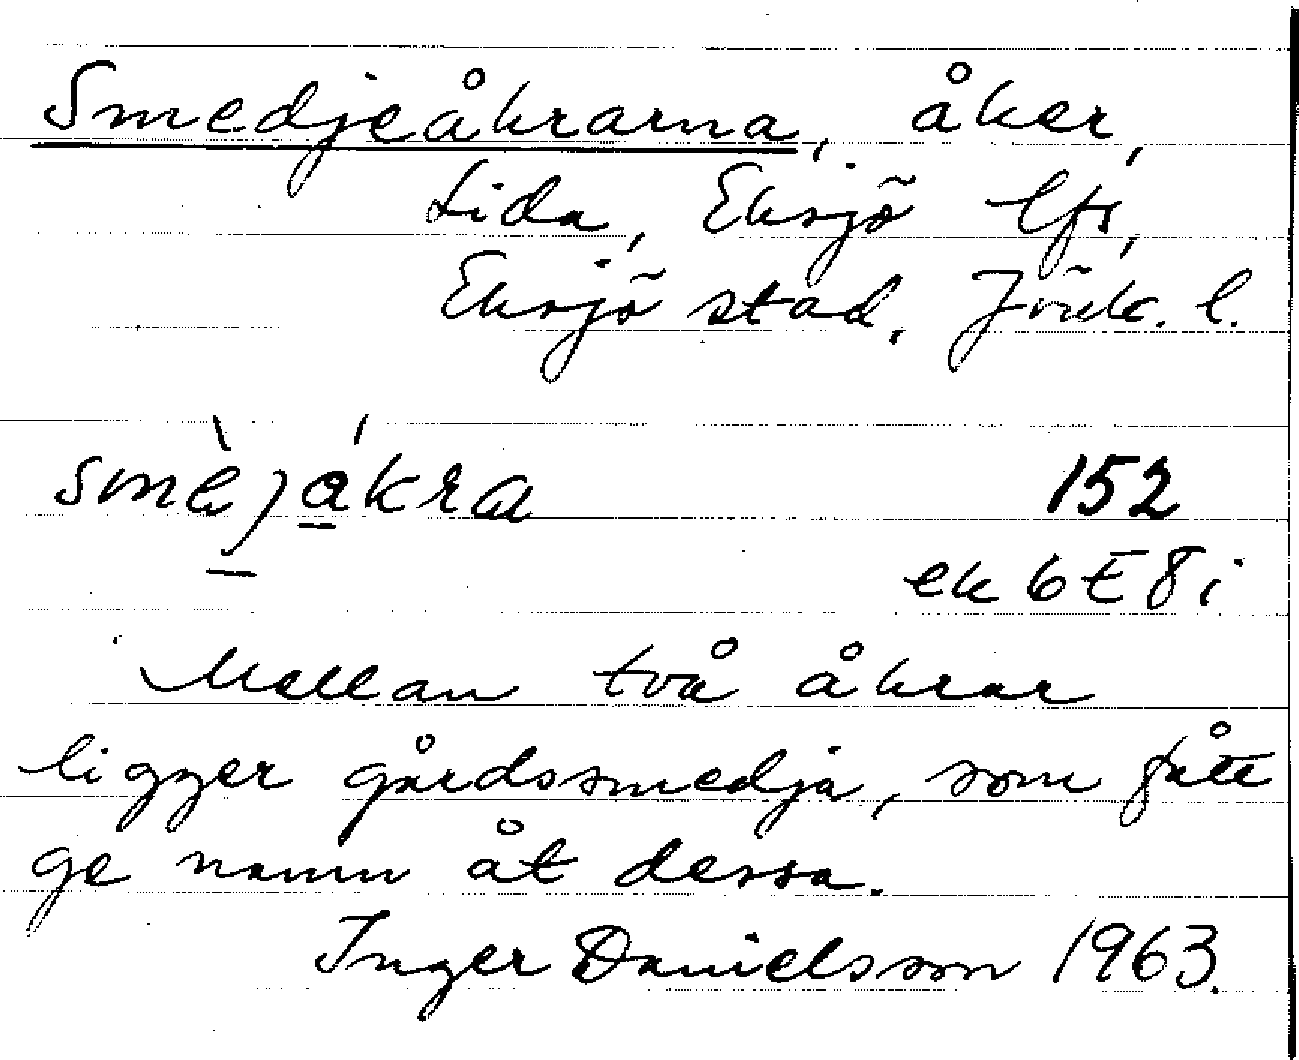 Smedjeåkrarna, åker,
Lida, Eksjö lfs,
Eksjö stad. Jönk. l.
smèjákra 152
ek 6E8i
Mellan två åkrar
ligger gårdssmedja, som fått
ge namn åt dessa.
Inger Danielsson 1963.